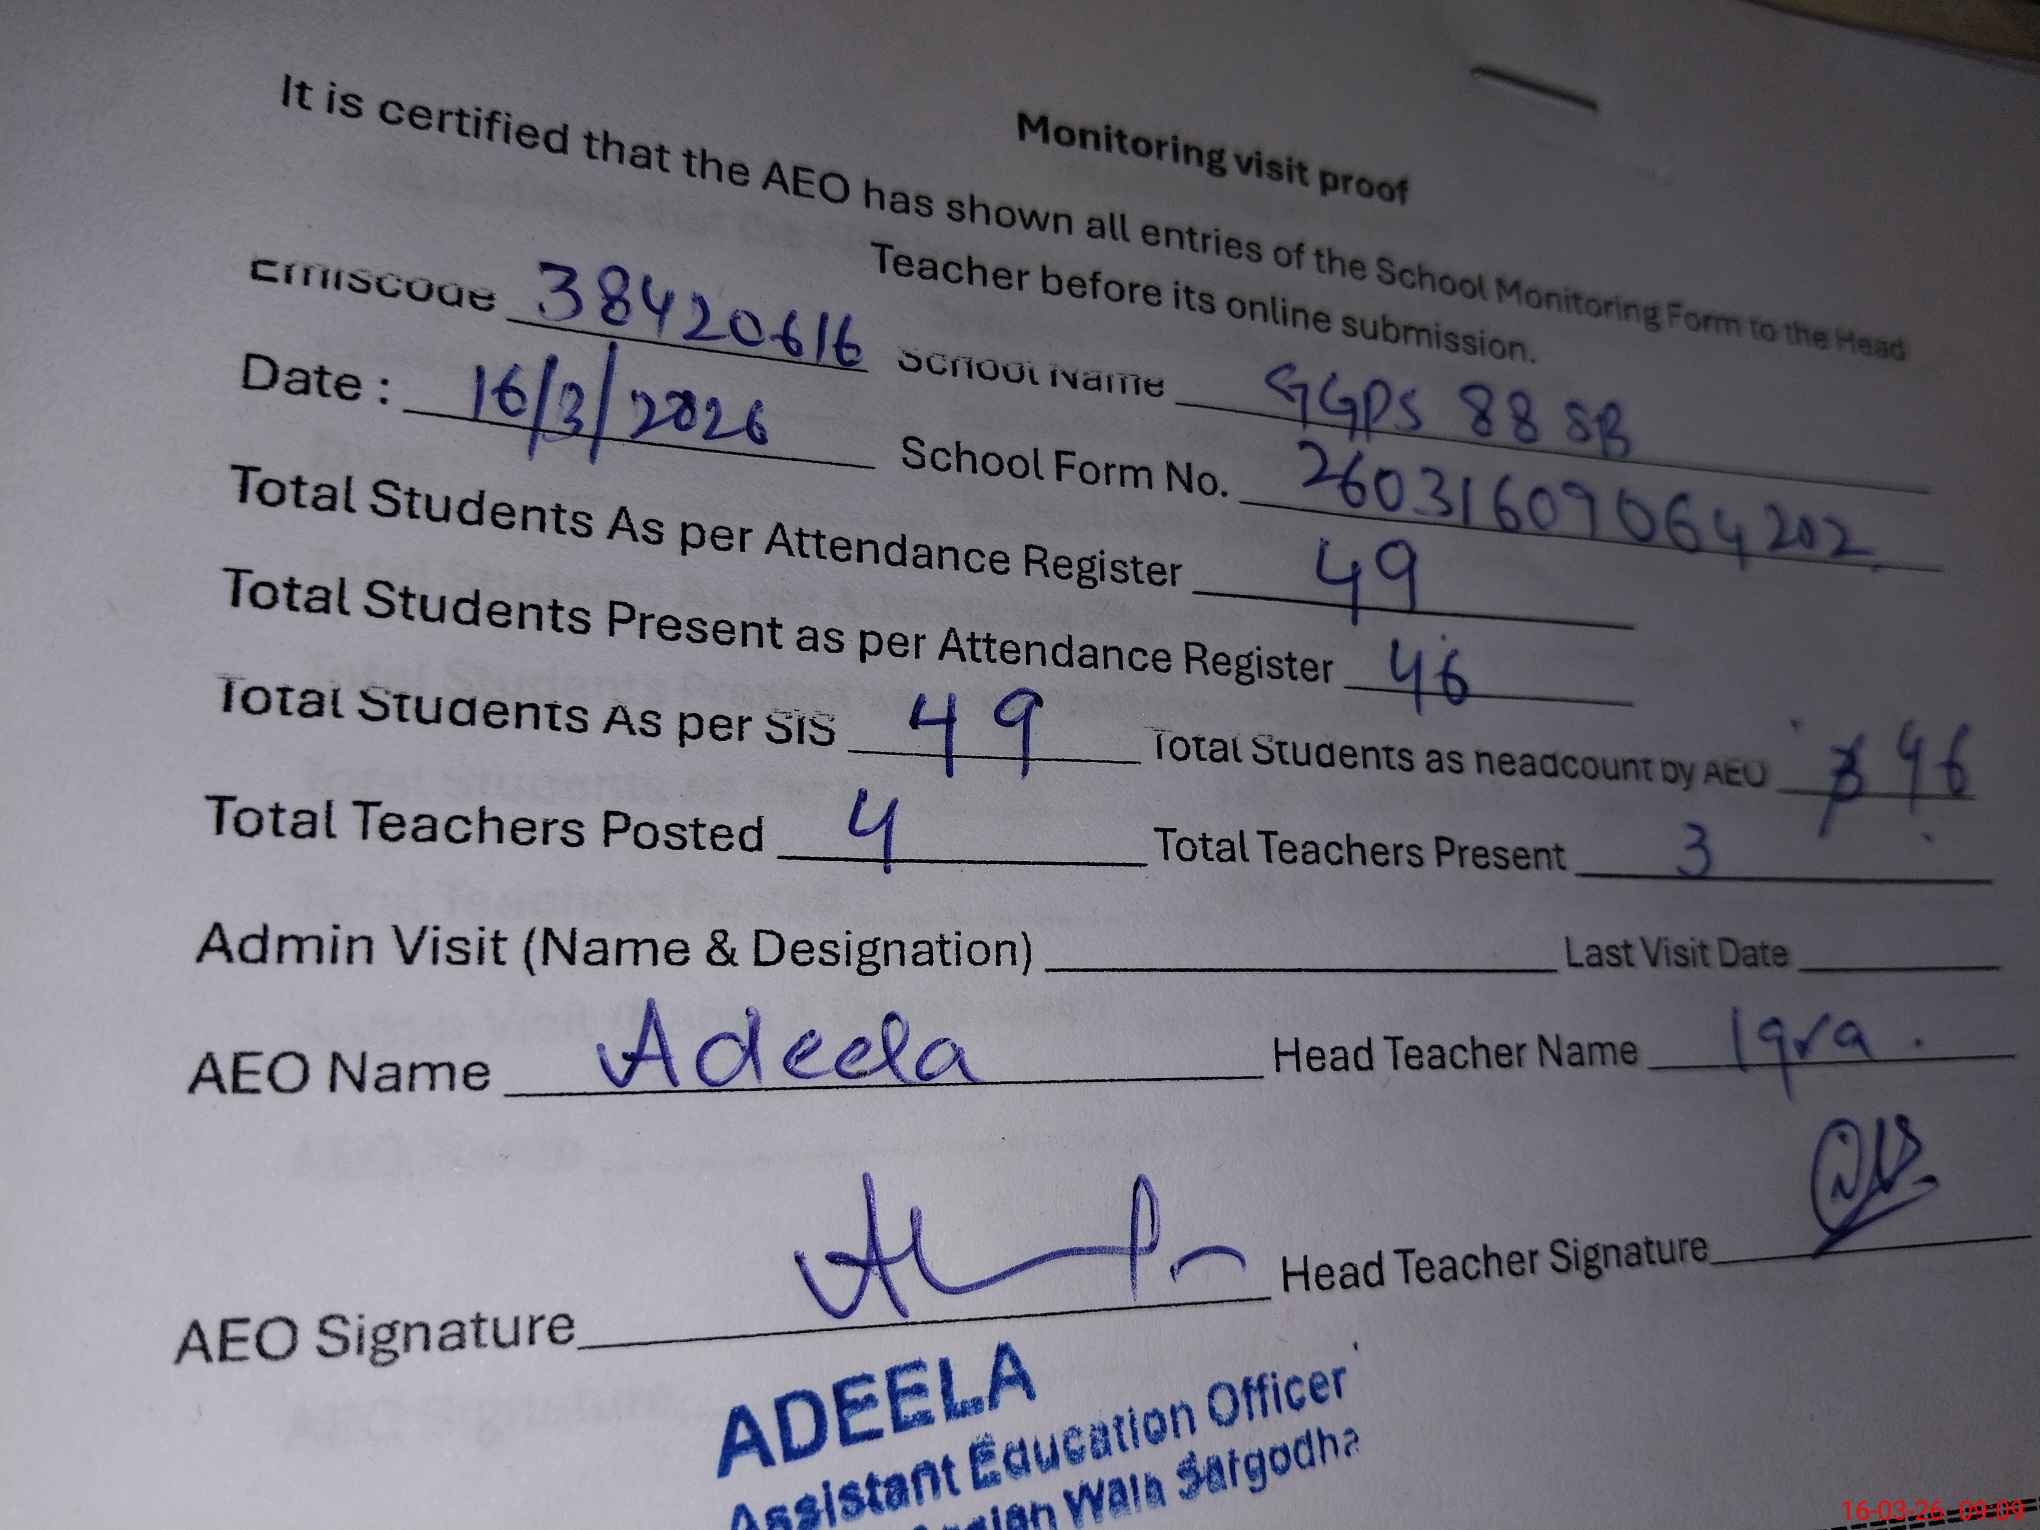 Monitoring visit proof
It is certified that the AEO has shown all entries of the School Monitoring Form to the Head
Teacher before its online submission.
Emiscode 38420616 School Name GGPS 88 SB
Date : 16/3/2026 School Form No. 26031609064202
Total Students As per Attendance Register 49
Total Students Present as per Attendance Register 46
Total Students As per SIS 49 Total Students as headcount by AEO 46
Total Teachers Posted 4 Total Teachers Present 3
Admin Visit (Name & Designation) Last Visit Date
AEO Name Adeela Head Teacher Name Iqra .
AEO Signature Head Teacher Signature
ADEELA
Assistant Education Officer
Wala Sargodha
16-03-26 09:09